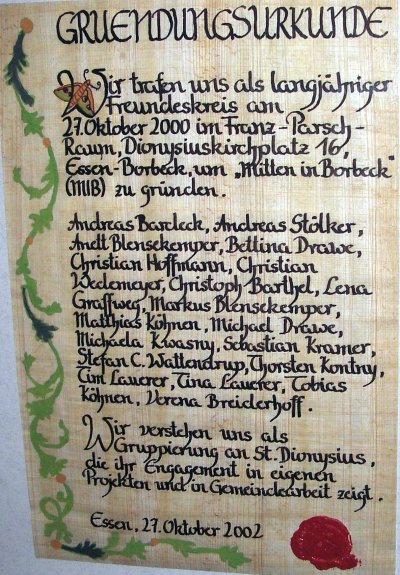 GRUENDUNGSURKUNDE
Wir trafen uns als langjähriger
Freundeskreis am
27. Oktober 2000 im Franz-Parsch-
Raum, Dionysiuskirchplatz 16,
Essen-Borbeck, um „Mitten in Borbeck"
(MIB) zu gründen.
Andreas Bardeck, Andreas Stölker,
Anett Blensekemper, Bettina Drawe,
Christian Hoffmann, Christian
Wedemeyer, Christoph Barthel, Lena
Graffweg, Markus Blensekemper,
Matthias Köhnen, Michael Drawe,
Michaela Kwasny, Sebastian Kramer,
Stefan C. Wattendrup, Thorsten Kontny,
Tim Lauerer, Tina Lauerer, Tobias
Köhnen, Verena Breiderhoff.
Wir verstehen uns als
Gruppierung an St. Dionysius,
die ihr Engagement in eigenen
Projekten und in Gemeindearbeit zeigt.
Essen, 27. Oktober 2002